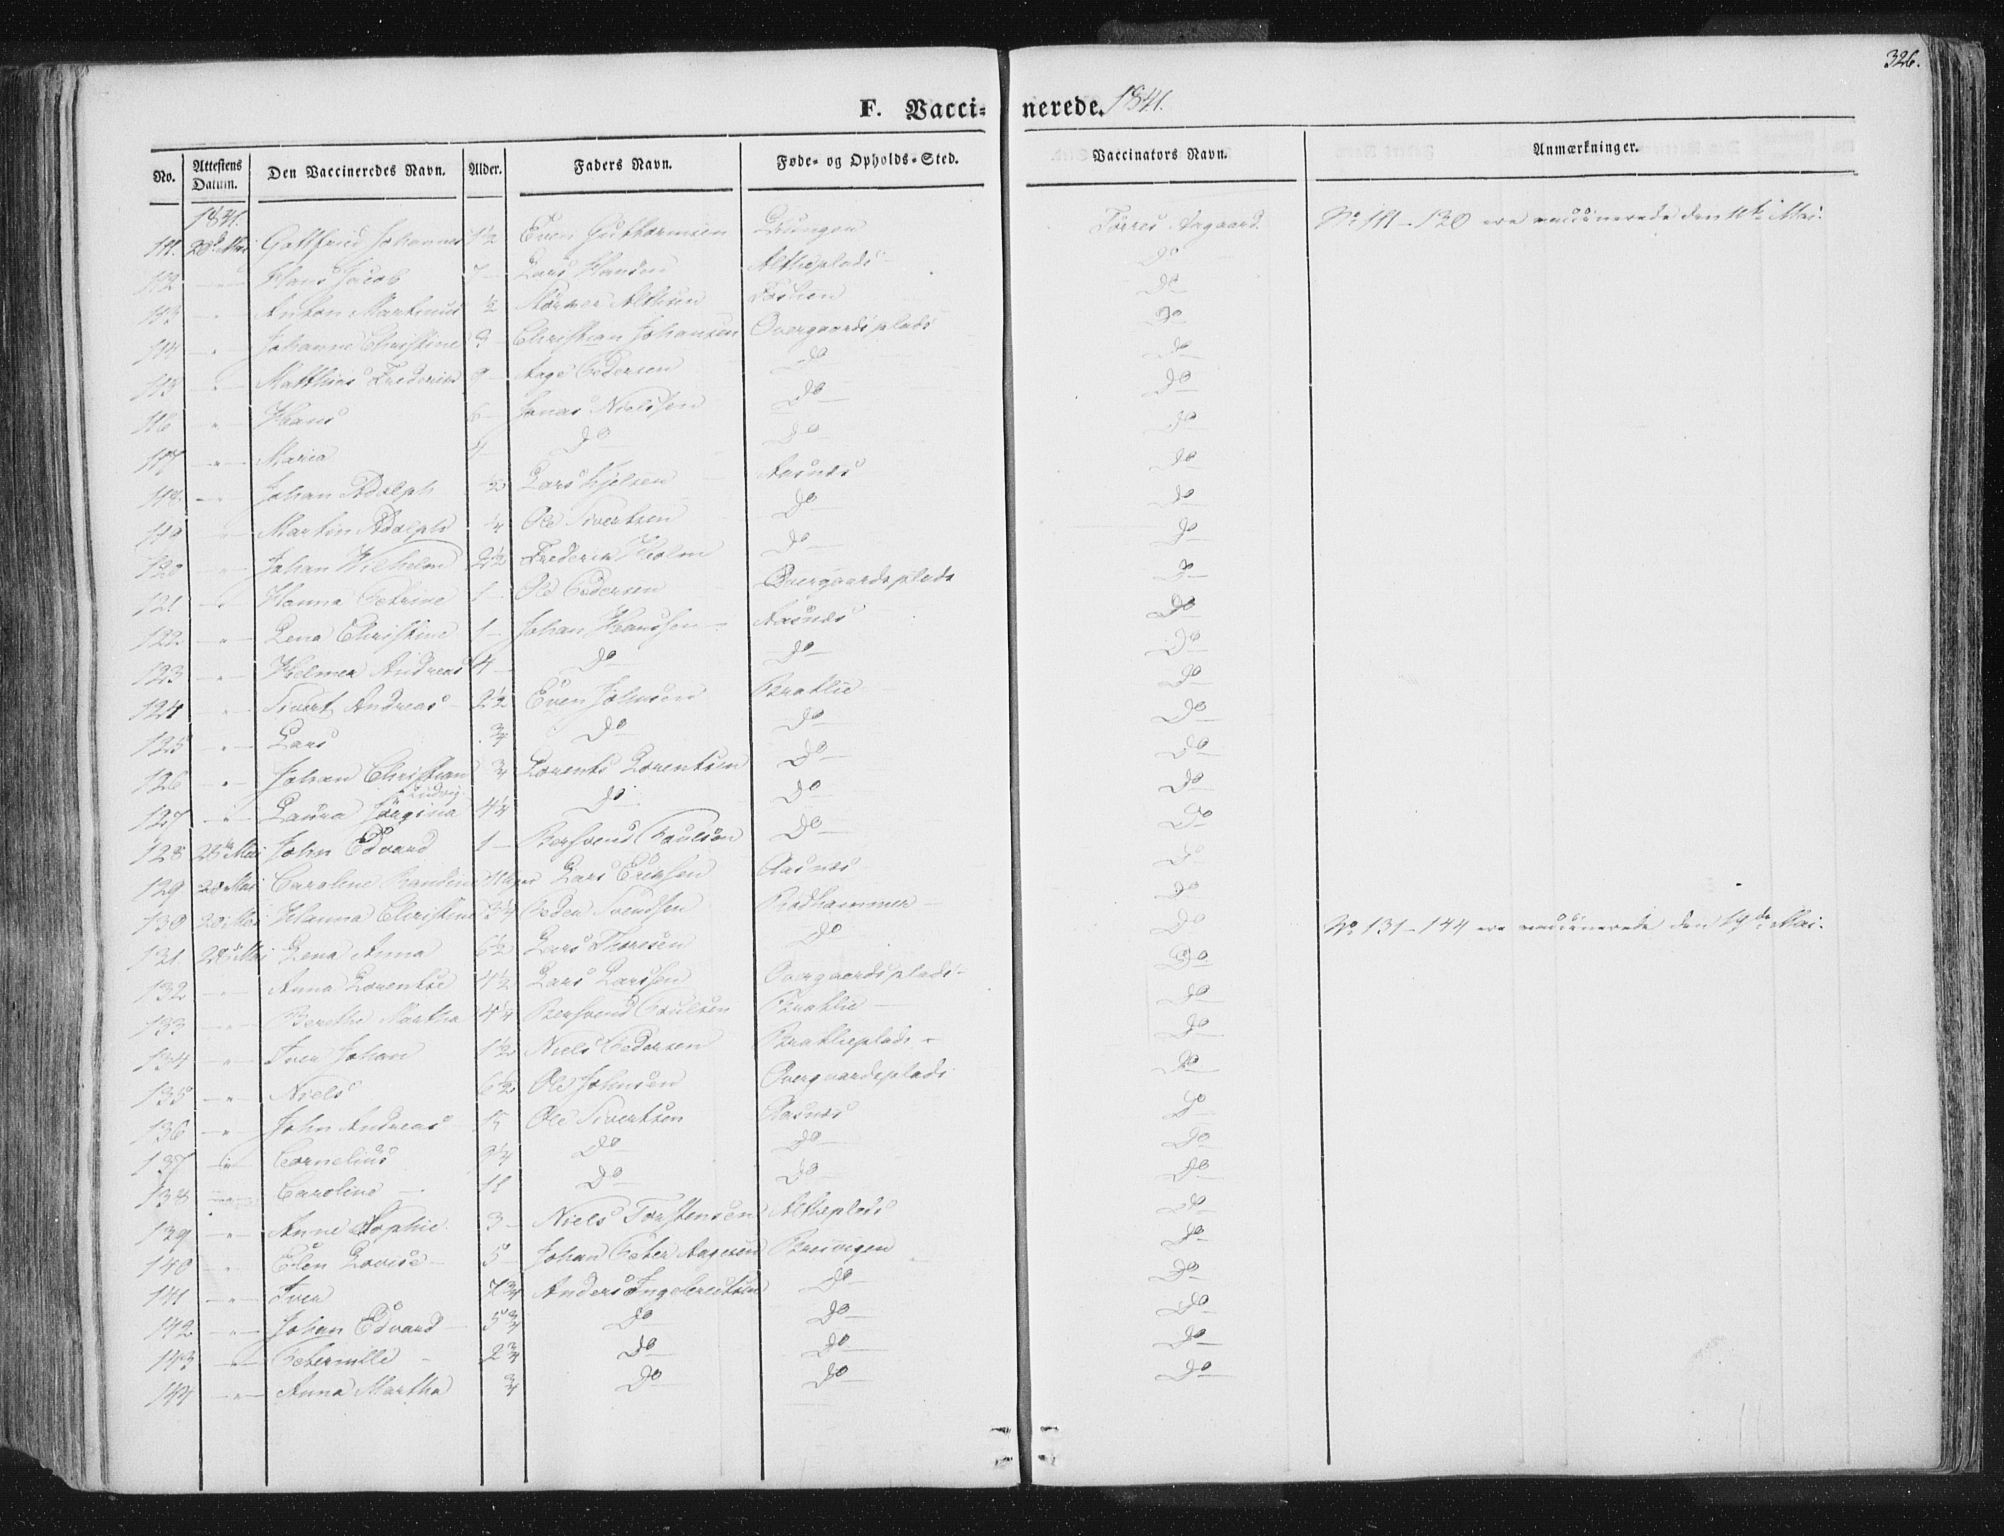 326.
F. Vaccinerede. 1841.
No. Attestens Datum. Den Vaccineredes Navn. Alder. Faders Navn. Føde- og Opholds-Sted. Vaccinators Navn. Anmærkninger.
1841.
111. 28de Mai Gottfried Johannes 1½ Even Guttormsen Torres Aagaard. No 111-130 ere vaccinerede den 11te Mai.
112 " Hans Jacob 7 Lars Hansen Altheplads Do
113 " Anton Martinus ½ Althsen Do
114 " Johanne Christine 9 Christian Johansen Overgaardsplads Do
115 " Matthias Frederik 9 Aage Pedersen Do Do
116 " Hans 6 Jonas Nielssen Do Do
117 " Maria 4 Do Do Do
118. " Johan Adolph ½ Lars Aasnes Do
119 " Martin Adolph ¼ Ole Sivertsen Do Do
120 " Johan Wilhelm 2½ Frederik Holm Do Do
121 " Hanna Petrine 1 Ole Pedersen Overgaardsplads Do
122. " Lena Christine 1 Johan Hanssen Aasnes Do
123 " Helmer Andreas 4 Do Do Do
124 " Sivert Andreas 2½ Even Johnsen Braklie Do
125 " Lars ¾ Do Do Do
126 " Johan Christian Ludvig ¾ Lorents Lorentsen Do Do
127 " Laura Jørgina 4¼ Do Do Do
128 28de Mai John Edvard 1 Berhvend Poulsen Do Do
129 28 Mai Caroline Lars Eriksen Aasnes Do
130 28 Mai Hanna Christine 3¼ Peder Svendsen Rødhammer Do
131. 28de Mai Lena Anna 6½ Lars Thoresen Do Do No 131-144 ere vaccinerede den 19de Mai.
132 " Anna Lorentse 4½ Lars Larssen Overgaardsplads Do
133 " Berethe Martha 4¼ Berhvend Poulsen Braklie Do
134 " Iver Johan 1½ Niels Pedersen Braklieplads Do
135 " Niels 6½ Ole Johnsen Overgaardsplads Do
136 " John Andreas 15 Ole Sivertsen Aasnes Do
137 " Cornelius 9¼ Do Do Do
138 " Caroline 11 Do Do Do
139 " Anne Sophie 3 Niels Torstensen Altheplads Do
140 " Elen Lovise 5 Johan Peter Aagesen Breivigen Do
141 " Iver 7¾ Anders Ingebrectsen Do Do
142 " Johan Edvard 5¾ Do Do Do
143 " Peternelle 2¾ Do Do Do
144 " Anna Martha ¾ Do Do Do